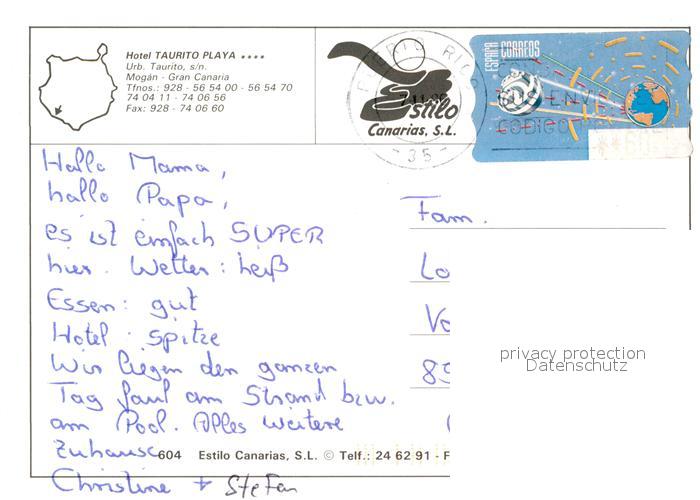 Hotel TAURITO PLAYA ★★★★
Urb. Taurito, s/n.
Mogán - Gran Canaria
Tfnos.: 928 - 56 54 00 - 56 54 70
74 04 11 - 74 06 56
Fax: 928 - 74 06 60
Estilo
Canarias, S.L.
PUERTO RICO
- 35 -
ESPAÑA CORREOS
CODIGO
Hallo Mama,
hallo Papa,
es ist einfach SUPER
hier. Wetter: heiß
Essen: gut
Hotel: spitze
Wir liegen den ganzen
Tag faul am Strand bzw.
am Pool. Alles weitere
Zuhause
Christine + Stefan
Fam.
Lo
Vo
89
privacy protection
Datenschutz
604 Estilo Canarias, S.L. © Telf.: 24 62 91 - F